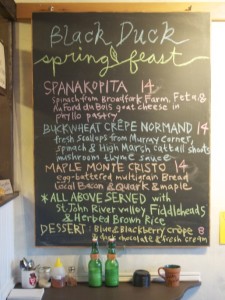 Black Duck
spring feast
SPANAKOPITA 14
spinach from Broadfork Farm, Feta &
Au Fond du Bois goat cheese in
phyllo pastry
BUCKWHEAT CRÊPE NORMAND 14
fresh scallops from Murray Corner,
spinach & High Marsh cattail shoots
mushroom thyme sauce
MAPLE MONTE CRISTO 14
egg-battered multigrain Bread
Local Bacon & Quark & maple
*ALL ABOVE SERVED with
St John River valley Fiddleheads
& Herbed Brown Rice
DESSERT: Blue & Blackberry crêpe 8
dark chocolate & fresh cream